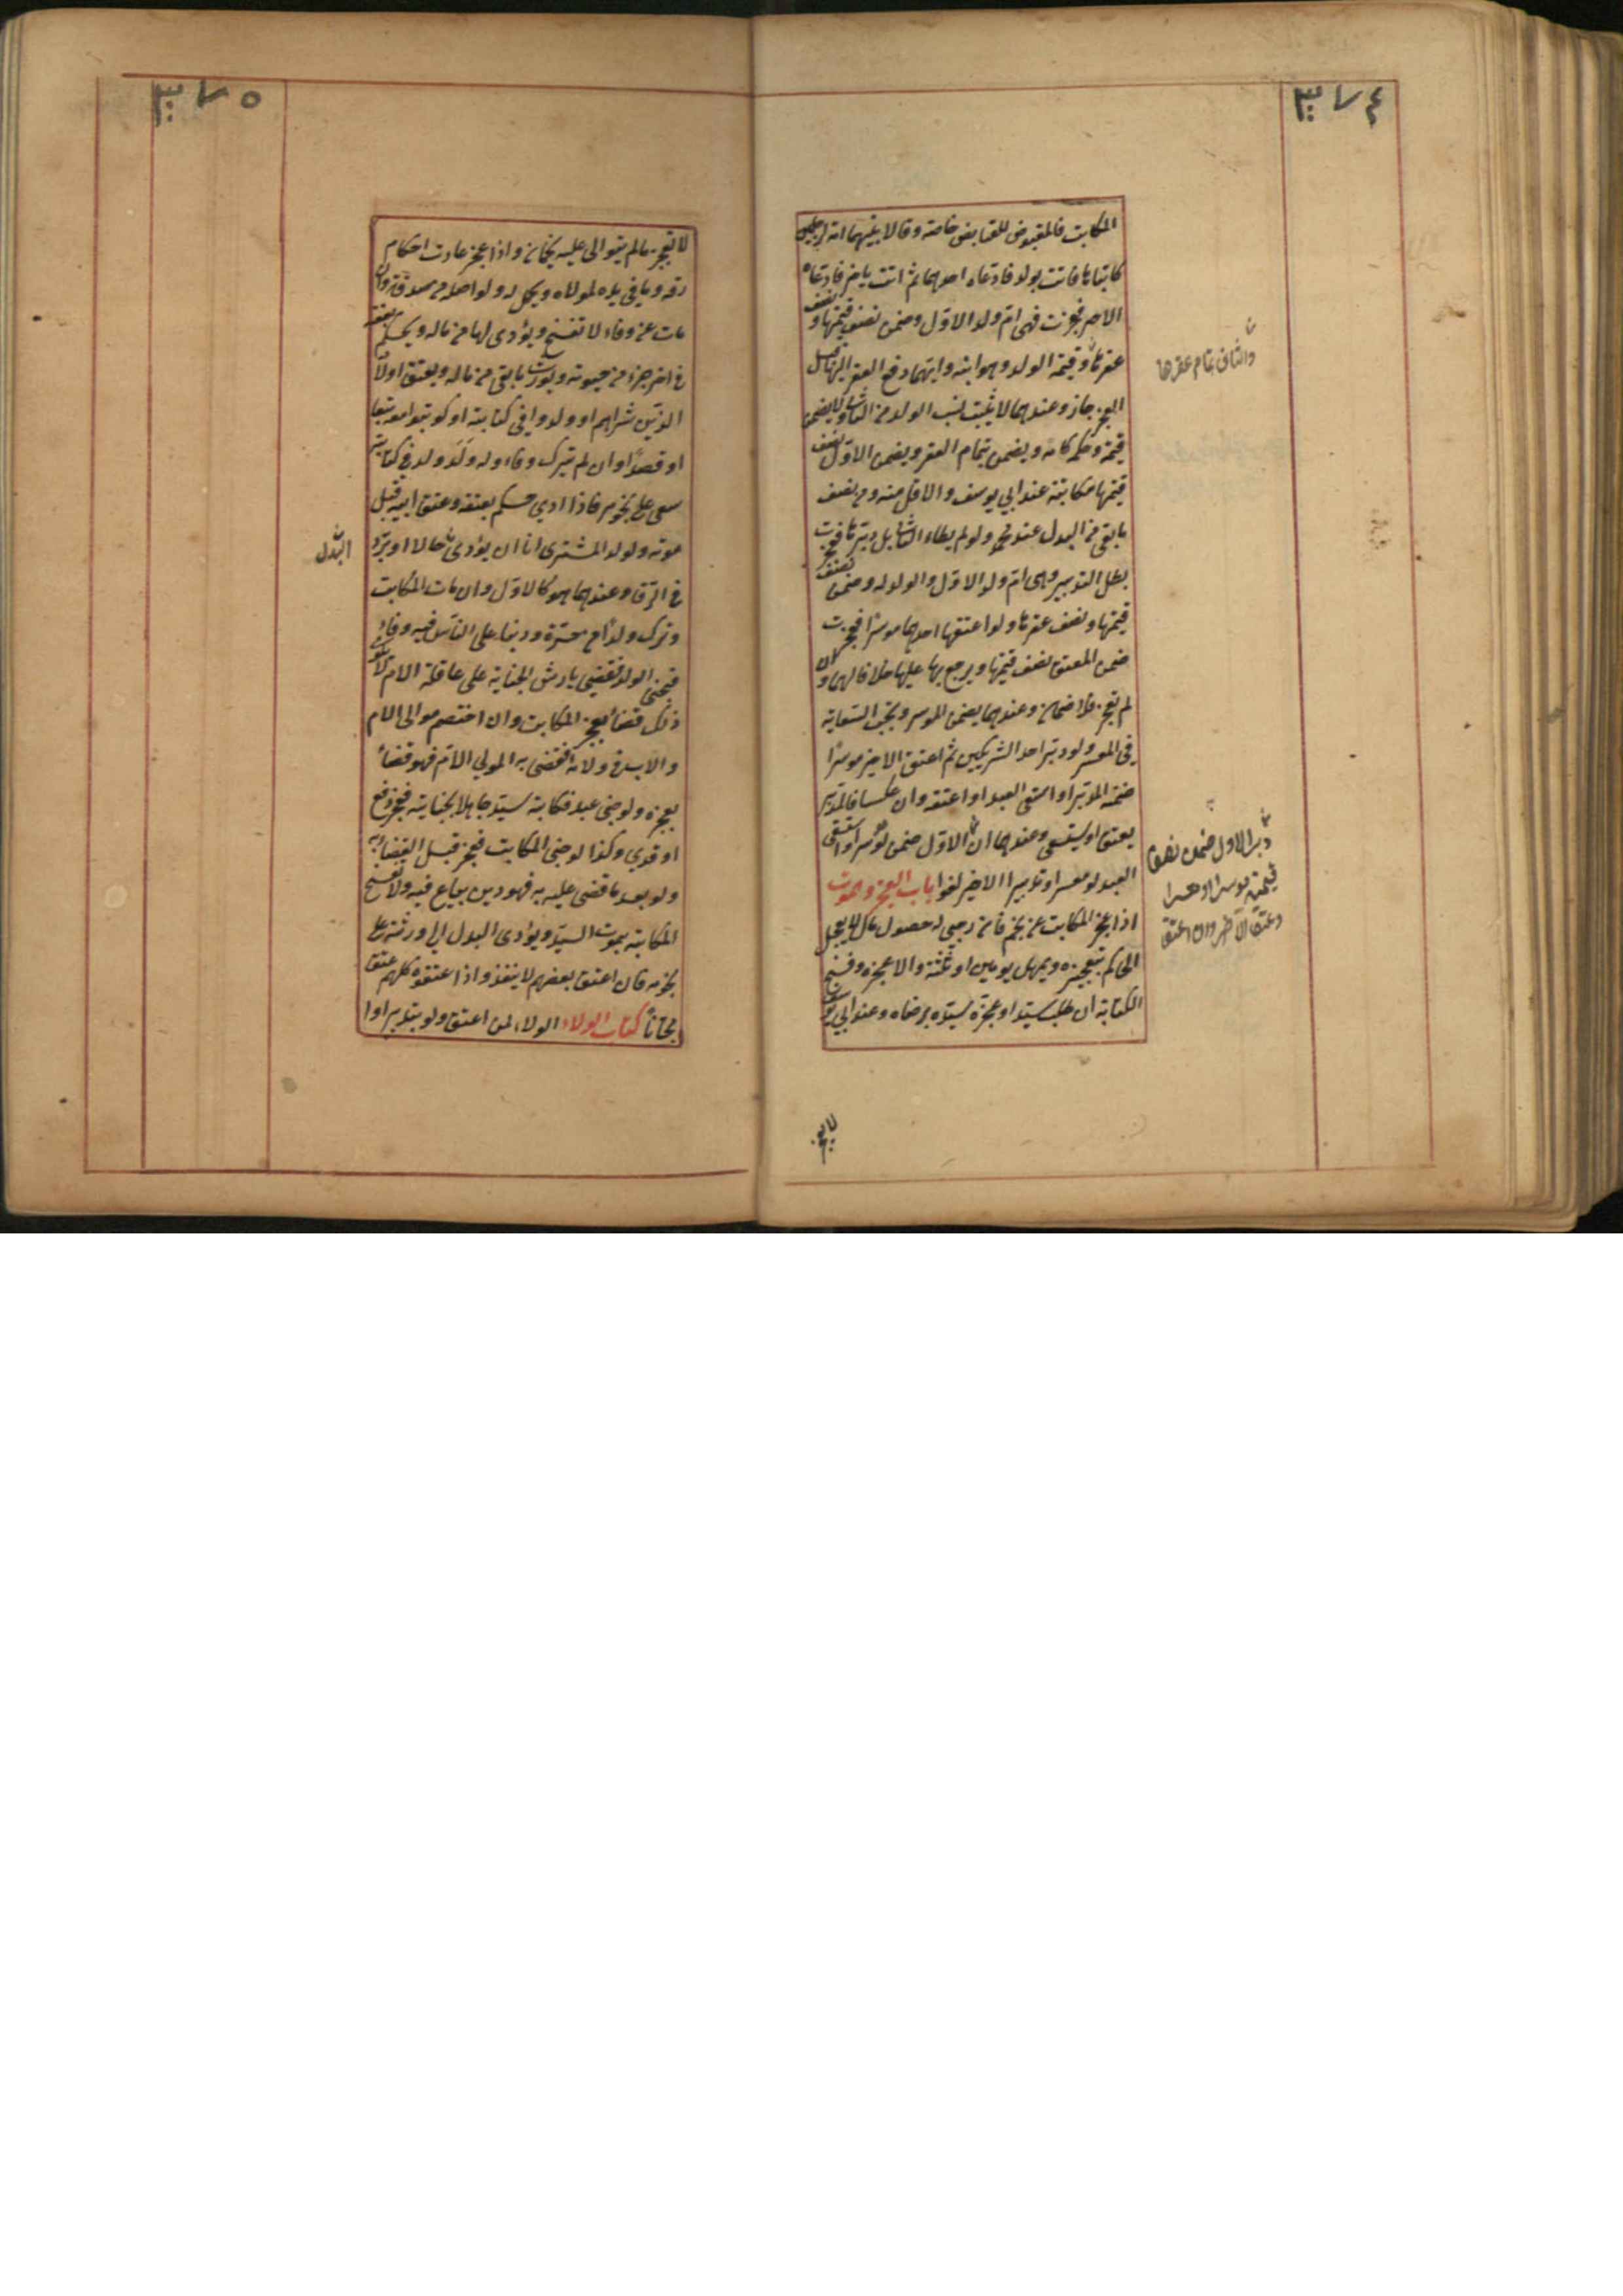 ٣٧٤
المكاتب فالمقبوض للقابض خاصة وقالا بينهما امة لرجلين
كاتباها فاتت بولد فادعاه احدهما ثم اتت باخر فادعاه
الاخر فعجزت فهي ام ولد الاول وضمن نصف قيمتها ونصف
عقرها وقيمة الولد وهو ابنه وايهما دفع العقر اليها قبل
العجز جاز وعندهما لا يثبت نسب الولد من الثاني ولا يضمن
قيمته وحكمه كامه ويضمن تمام العقر ويضمن الاول نصف
قيمتها مكاتبة عند ابي يوسف والاقل منه ومن نصف
ما بقي من البدل عند محمد ولو لم يطاء الثاني بل دبرها فعجزت
بطل التدبير وهي ام ولد الاول والولد له وضمن نصف
قيمتها ونصف عقرها ولو اعتقها احدهما موسرا فعجزت
ضمن المعتق نصف قيمتها ويرجع بها عليها خلافا لهما وان
لم تعجز فلا ضمان وعندهما يضمن الموسر وتجب السعاية
في المعسر ولو دبر احد الشريكين ثم اعتق الاخر موسرا
ضمنه المدبر او استسعى العبد او اعتقه وان عكسا فالمدبر
يعتق او يستسعي وعندهما ان الاول ضمن لو موسرا او استسعى
العبد لو معسرا وتدبير الاخير لغو باب العجز والموت
اذا عجز المكاتب عن نجم فان رجي له حصول مال لا يعجل
الحاكم بتعجيزه ويمهل يومين او ثلثة والا عجزه وفسخ
الكتابة ان طلب سيده او عجزه سيده برضاه وعند ابي يوسف
والثاني تمام عقرها
دبر الاول ضمن نصف
قيمته موسرا او معسرا
وعتق الآخر وان اعتق
لا يعجز
٣٧٥
لا تعجز ما لم يتوالى عليه نجمان واذا عجز عادت احكام
رقه وما في يده لمولاه ويحل له ولو اصله من صدقة وان
مات عن وفاء لا تفسخ ويؤدي لها من ماله ويحكم بعتقه
في اخر جزء من حيوته ويورث ما بقي من ماله ويعتق اولاده
الذين شراهم او ولدوا في كتابته او كوتبوا معه تبعا
او قصدا وان لم يترك وفاء وله ولد ولد في كتابته
سعى على نجومه فاذا ادى حكم بعتقه وعتق ابيه قبل
موته ولو لد المشترى اما ان يؤدي حالا او يرد
في الرق وعندهما هو كالاول وان مات المكاتب
وترك ولدا من حرة ودينا على الناس فيه وفاء
فجنى الولد فقضي بارش الجناية على عاقلة الام لا يكون
ذلك قضاء بعجز المكاتب وان اختصم موالي الام
والاب في ولائه فقضى به لمولي الام فهو قضاء
بعجزه ولو جنى عبد فكاتبه سيده جاهلا بجنايته فعجز دفع
او فدي وكذا لو جنى المكاتب فعجز قبل القضاء به
ولو بعد ما قضي عليه به فهو دين يباع فيه ولا تفسخ
الكتابة بموت السيد ويؤدي البدل الى ورثته على
نجومه فان اعتق بعضهم لا ينفذ واذا اعتقوه كلهم عتق
مجانا كتاب الولاء الولاء لمن اعتق ولو بتدبير او ا
البدل